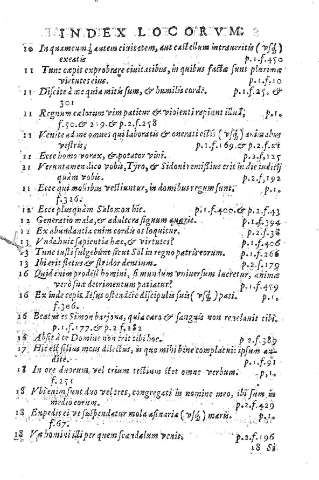 INDEX LOCORVM.
10 In quamcunq; autem ciuitatem, aut castellum intraueritis (vsq;)
exeatis p.1.f.450
11 Tunc cæpit exprobrare ciuitatibus, in quibus factæ sunt plurimæ
virtutes eius. p.1.
11 Discite à me quia mitis sum, & humilis corde. p.1.f.25. &
301
11 Regnum cælorum vim patitur & violenti rapiunt illud. p.1.
f.50. & 219. & p.2.f.258
11 Venite ad me omnes qui laboratis & onerati estis (vsq;) animabus
vestris, p.1.f.169. & p.2.f.
11 Ecce homo vorax, & potator vini. p.2.f.125
11 Veruntamen dico vobis, Tyro, & Sidoni remissius erit in die iudicij
quàm vobis. p.2.f.192
11 Ecce qui mollibus vestiuntur, in domibus regum sunt. p.1.
f.326.
12 Ecce plusquam Salomon hic. p.1.f.400. & p.2.f.43
12 Generatio mala, & adultera signum quærit. p.1.f.394
12 Ex abundantia enim cordis os loquitur. p.2.f.38
13 Vnde huic sapientia hæc, & virtutes? p.1.f.406
13 Tunc iusti fulgebunt sicut Sol in regno patris eorum. p.1.f.266
13 Ibi erit fletus & stridor dentium. p.2.f.179
16 Quid enim prodest homini, si mundum vniuersum lucretur, animæ
verò suæ detrimentum patiatur? p.1.f.459
16 Ex inde cepit Iesus ostendere discipulis suis (vsq;) pati. p.1.
f.306.
16 Beatus es Simon barjona, quia caro & sanguis non reuelauit tibi.
p.1.f.177. & p.2.f.182
16 Absit à te Domine non erit tibi hoc. p.2.f.389
17 Hic est filius meus dilectus, in quo mihi bene complacui: ipsum audite.
p.1.f.91
18 In ore duorum, vel trium testium stet omne verbum. p.1.
f.251
18 Vbi enim sunt duo vel tres, congregati in nomine meo, ibi sum in
medio eorum. p.2.f.429
18 Expedit ei vt suspendatur mola asinaria (vsq;) maris. p.1.
f.67.
18 Væ homini illi per quem scandalum venit. p.2.f.196
18 Si